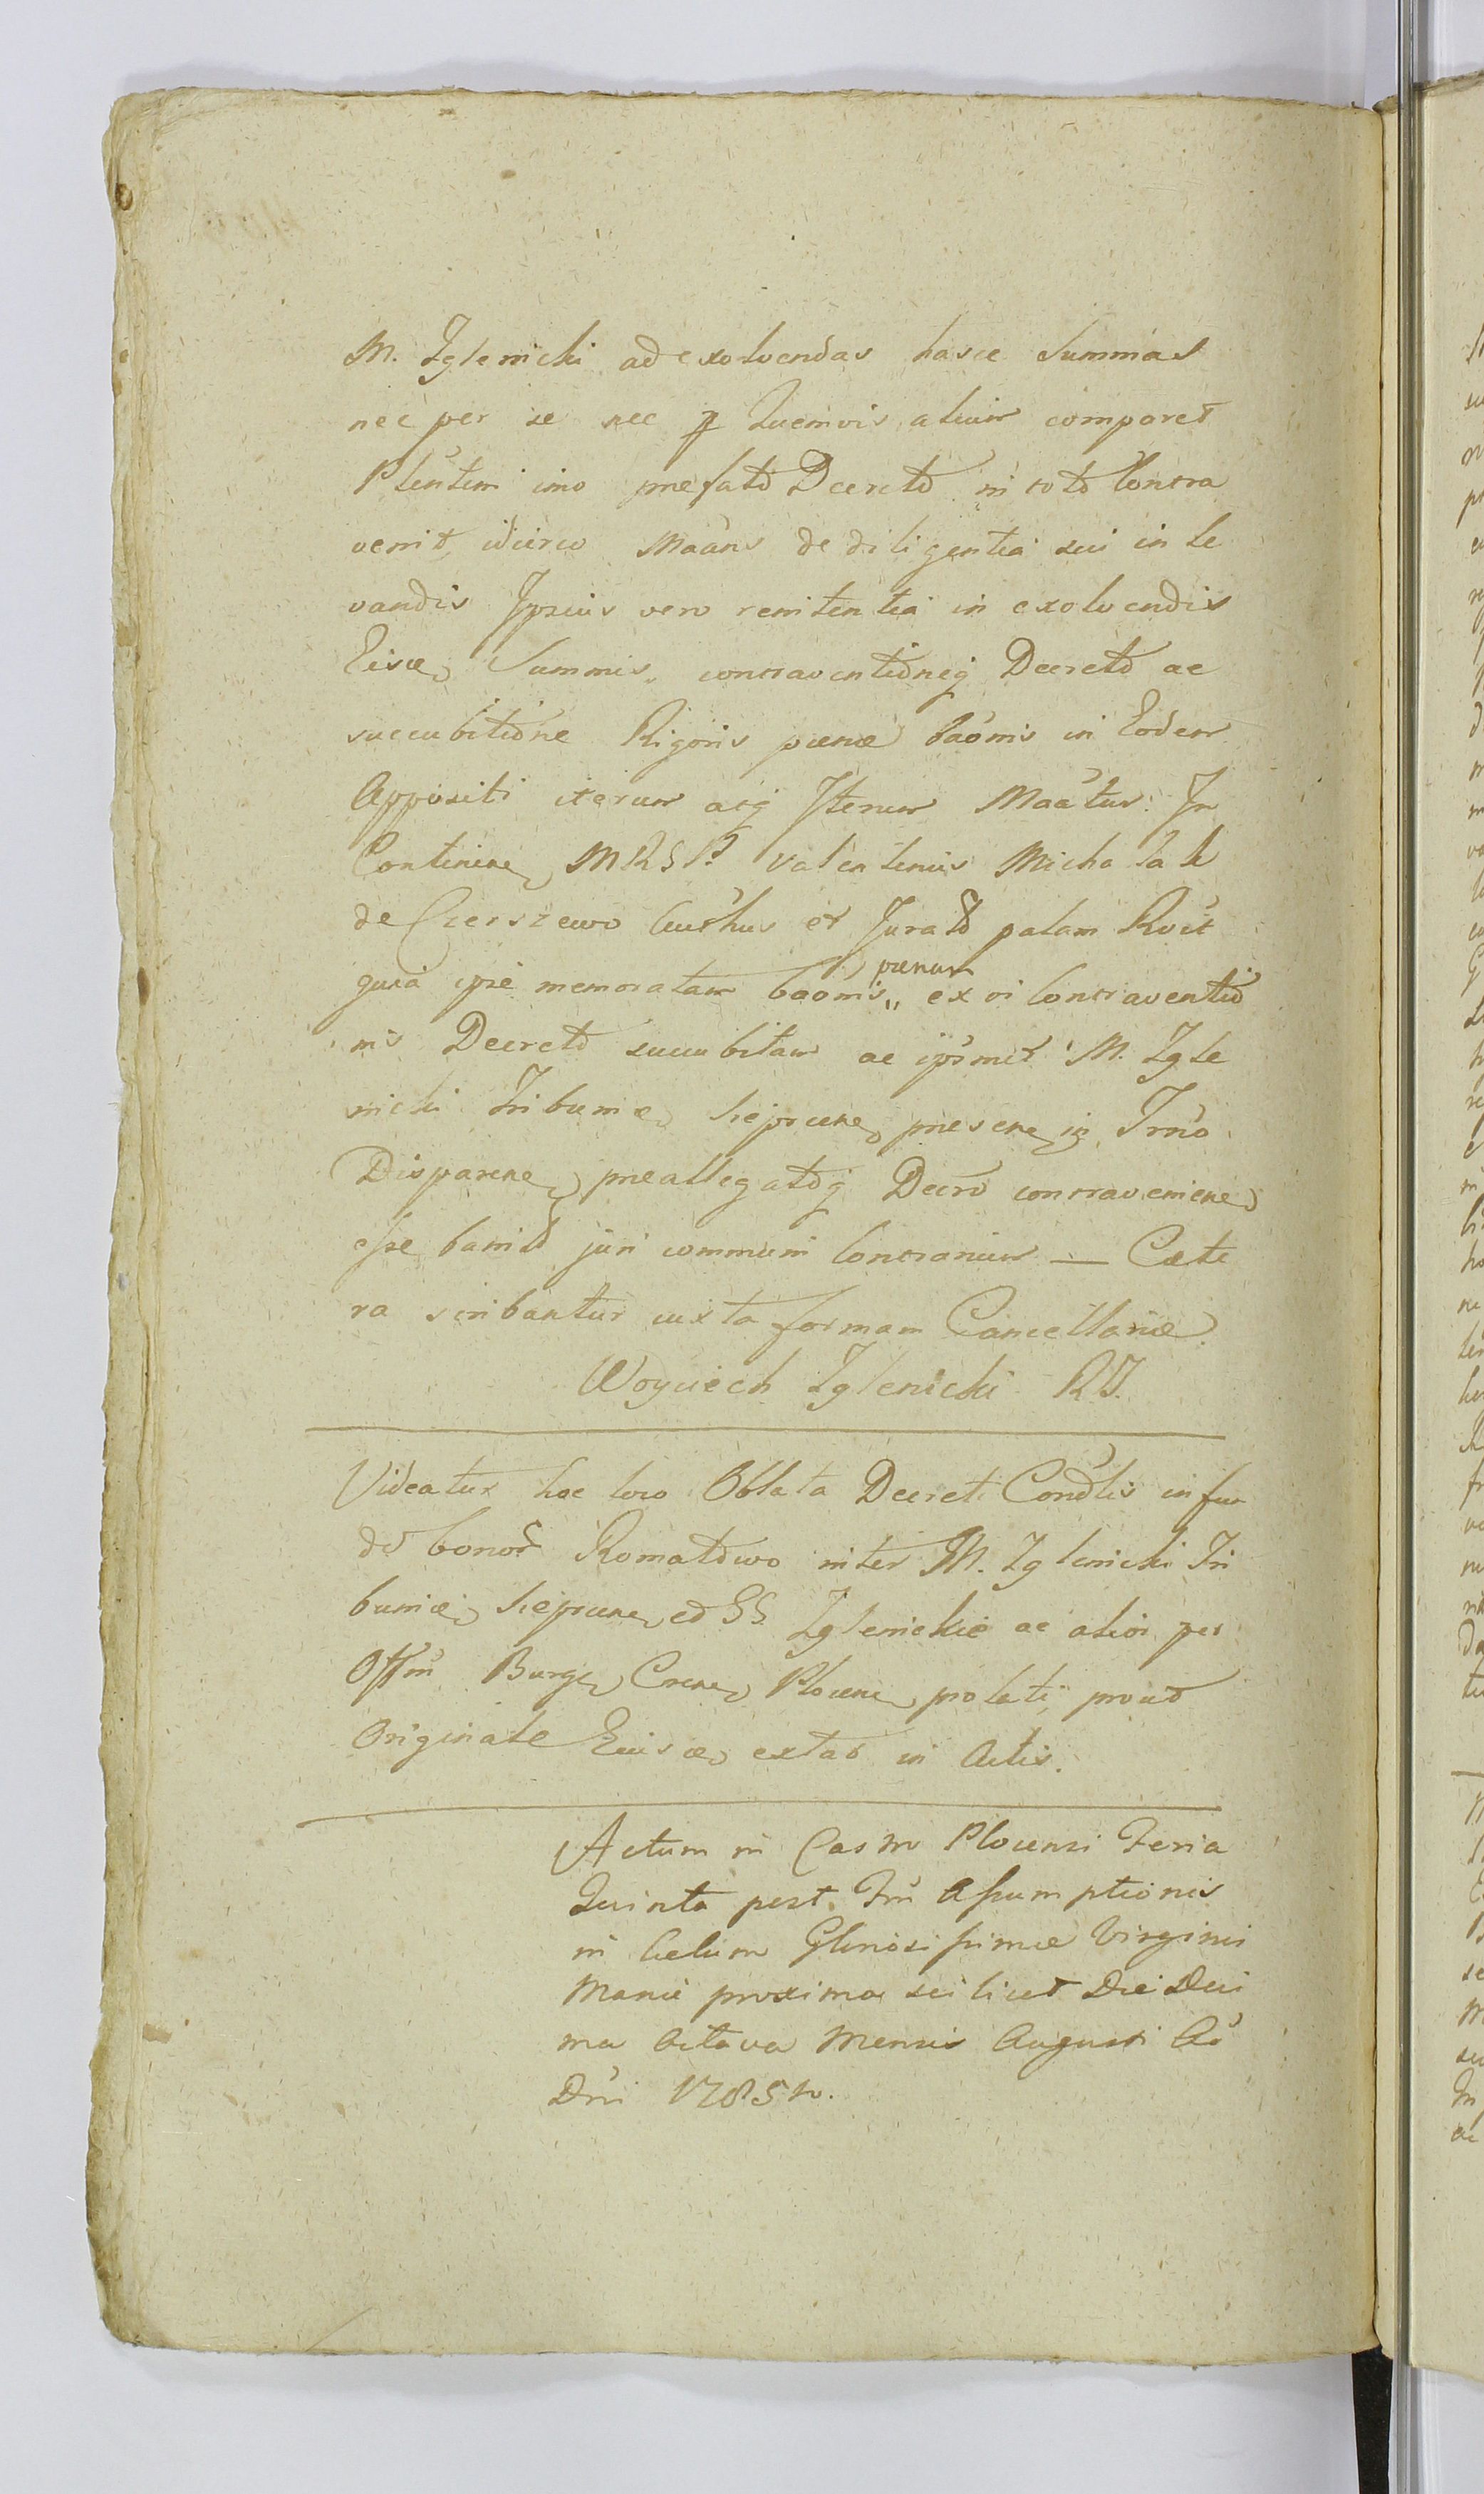 M. Zglenicki ad exolvendas hasce Summas
nec per se nec p Quemvis alium comparet
Plentem imo prefato Decreto in toto Contra
venit, idcirco Maans de diligentia sui in le
vandis Ipsius vero renitentia in exolvendis
Eisd Summis, contraventioneq Decreto ac
succubitione Rigoris pœnæ baonis in Eodem
Appositi iterum atq Iterum Maatur. In
Continen MRSP. Valentinus Michalak
de Cierszewo et Jurato palam Rvit
quia ipse memoratam baonis „ pœnam ex vi Contraventio
nis Decreto succubitam ac ipsmet M. Zgle
nicki Tribunæ Sieprcen presen in Trno
Disparen preallegatoq Decro contravenien
esse banito juri communi Contrarium — Cæte
ra scribantur iuxta formam Cancellariæ.
Woyciech Zglenicki RJ.
Videatur hoc loco Oblata Decreti Condlis in fun
do bonor Romatowo inter M. Zglenicki Tri
bunæ Sieprcen et GG. Zglenickie ac alios per
Offm Burg Cren Plocen prolati, prout
Originale Eiusd extat in Actis.
Actum in Castro Plocensi Feria
Quinta post Fm Assumptionis
in Cælum Gloriosissimæ Virginis
Mariæ proxima scilicet Die Deci
ma Octava Mensis Augusti Ao
Dni 1785to.